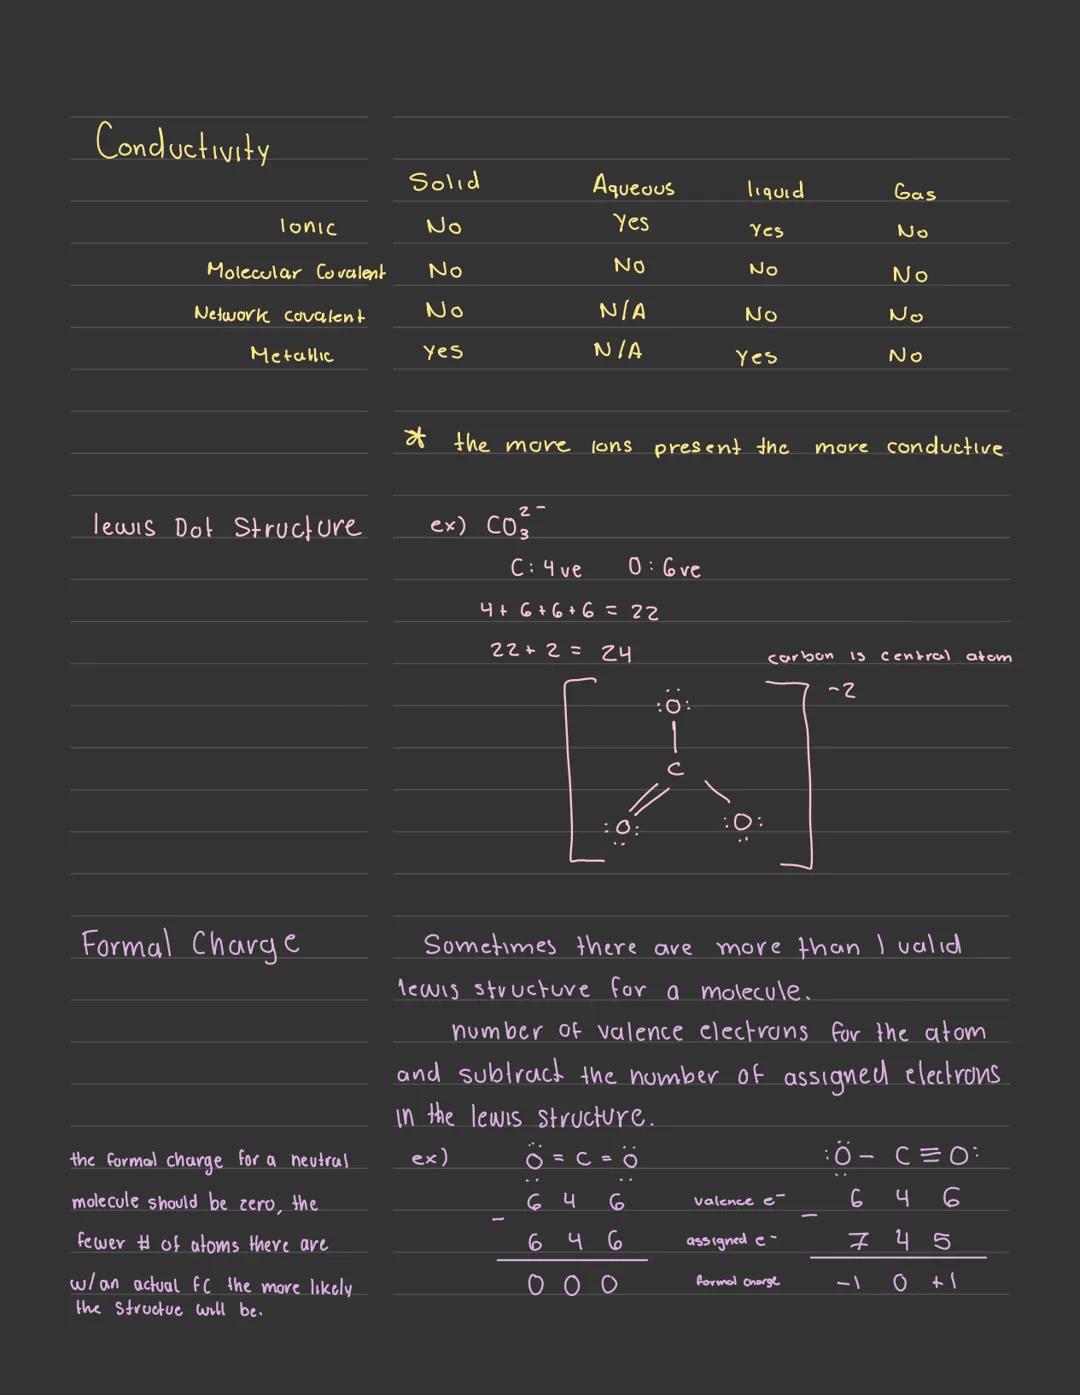 Conductivity
Solid Aqueous liquid Gas
Ionic No Yes Yes No
Molecular Covalent No No No No
Network covalent No N/A No No
Metallic Yes N/A Yes No
* the more ions present the more conductive
lewis Dot Structure ex) CO₃²⁻
C: 4 ve O: 6 ve
4 + 6 + 6 + 6 = 22
22 + 2 = 24
carbon is central atom
-2
:Ö:
C
:O: :O:
Formal Charge Sometimes there are more than 1 valid
lewis structure for a molecule.
number of valence electrons for the atom
and subtract the number of assigned electrons
in the lewis structure.
the formal charge for a neutral ex) Ö = C = Ö :Ö - C ≡ O:
molecule should be zero, the 6 4 6 valence e- 6 4 6
fewer # of atoms there are - 6 4 6 assigned e- - 7 4 5
w/ an actual FC the more likely 0 0 0 formal charge -1 0 +1
the structue will be.